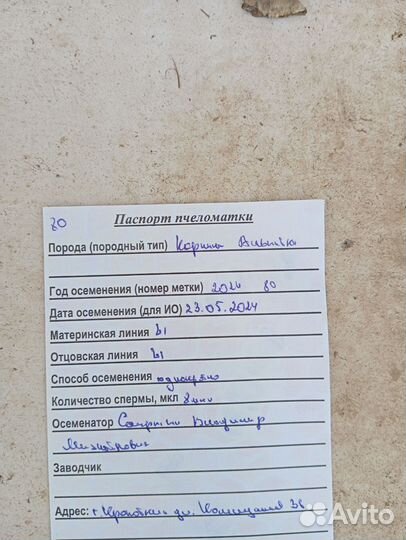 80
Паспорт пчеломатки
Порода (породный тип) Карника
Год осеменения (номер метки) 2024 80
Дата осеменения (для ИО) 23.05.2024
Материнская линия
Отцовская линия
Способ осеменения
Количество спермы, мкл 8 мкл
Осеменатор Владимир
Михайлович
Заводчик
Адрес: г Кропоткин ул. 38
Avito